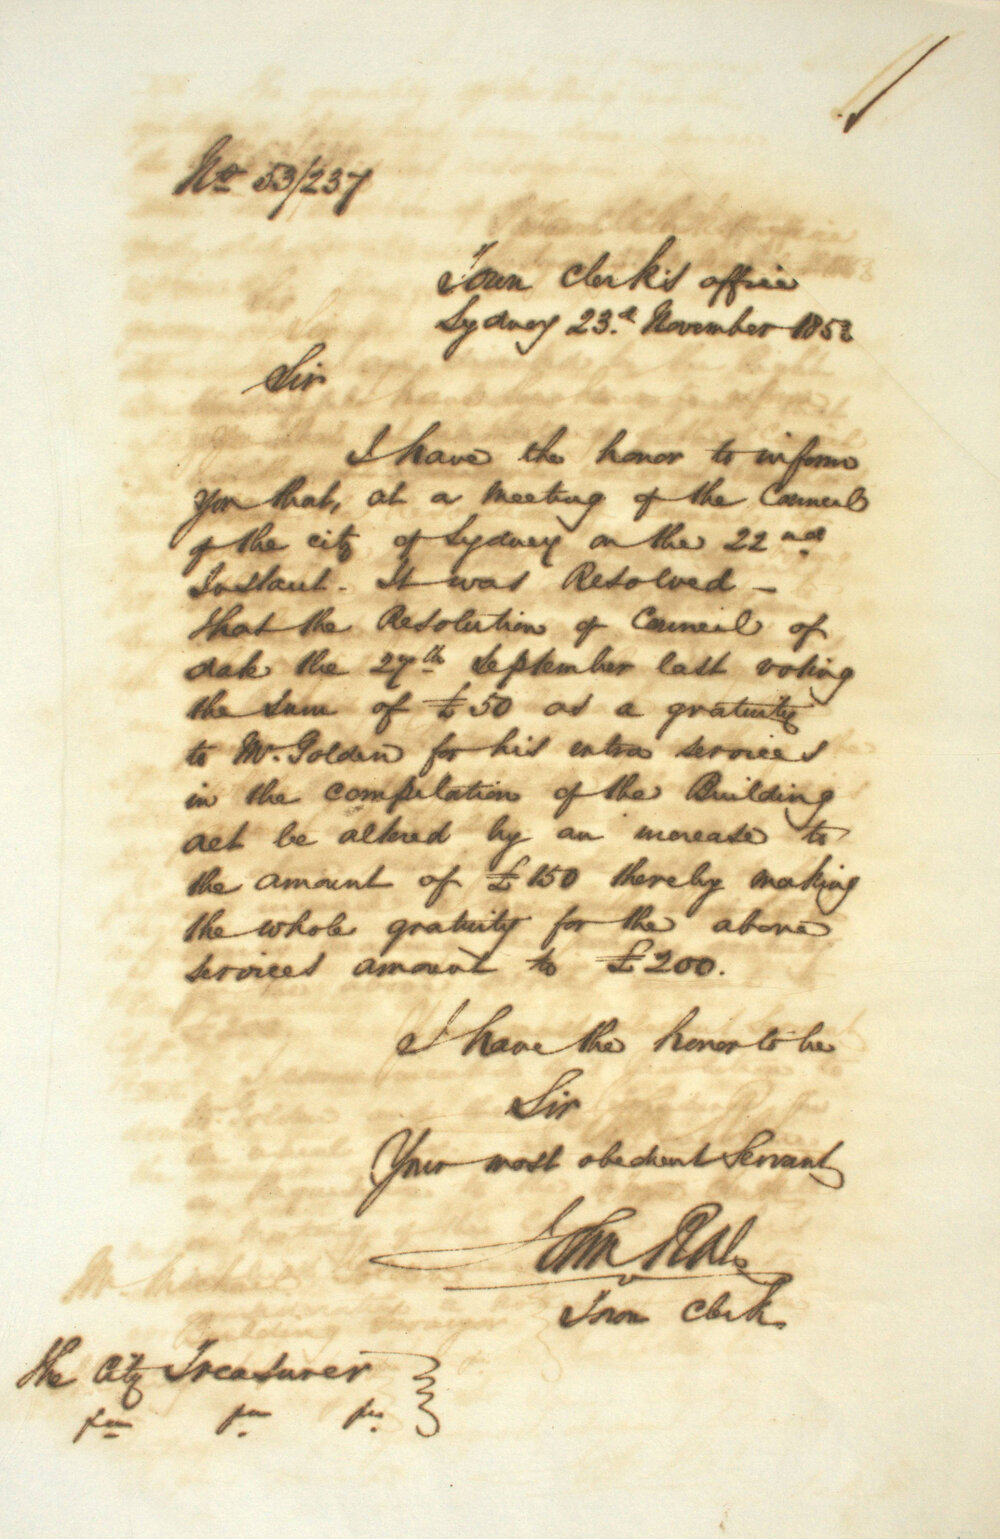 No 53/237
Town Clerk's office
Sydney 23.d November 1853
Sir
I have the honor to inform
you that, at a meeting of the Council
of the city of Sydney on the 22nd
Instant. It was Resolved –
that the Resolution of Council of
date the 27th September last voting
the sum of £50 as a gratuity
to Mr. Golden for his extra services
in the compilation of the Building
act be altered by an increase to
the amount of £150 thereby making
the whole gratuity for the above
services amount to £200.
I have the honor to be
Sir
Your most obedient Servant
John
Town Clerk.
The City Treasurer